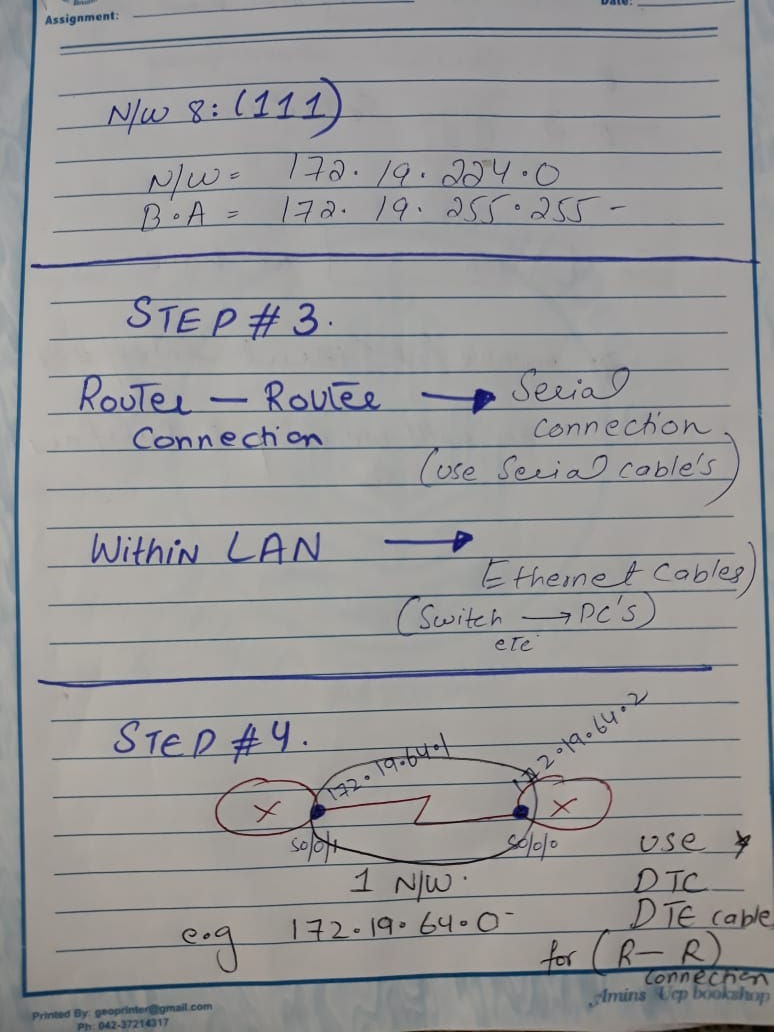 Assignment:
Date:
N/W 8: (111)
N/W = 172.19.224.0
B.A = 172.19.255.255 -
STEP # 3.
Router - Router → Serial
Connection connection
(use Serial cable's)
Within LAN →
Ethernet Cables)
(Switch → PC'S)
etc
STEP #4.
172.19.64.1
172.19.64.2
X X
S0/0/1 S0/0/0
1 N/W.
e.g 172.19.64.0-
use
DTC
DTE cable
for (R-R)
connection
Amins Ucp bookshop
Printed By: geoprinter@gmail.com
Ph: 042-37214317